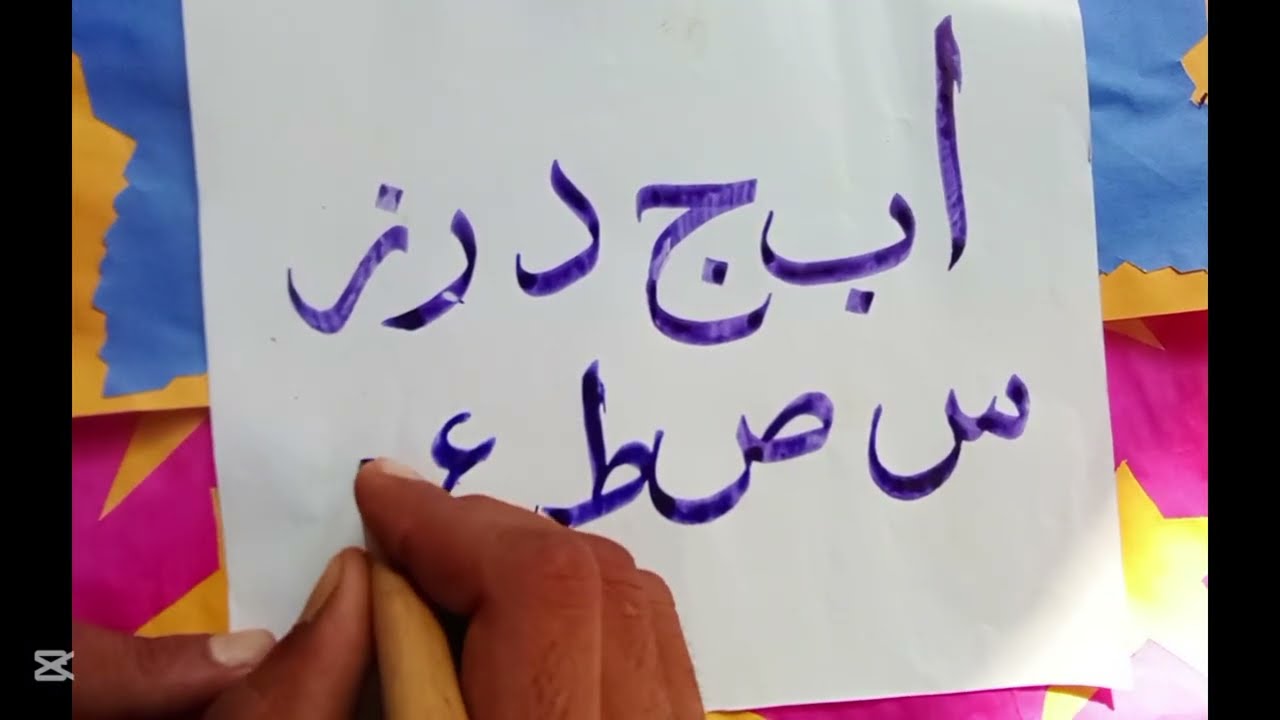 ا ب ج د ر ز
س ص ط ع